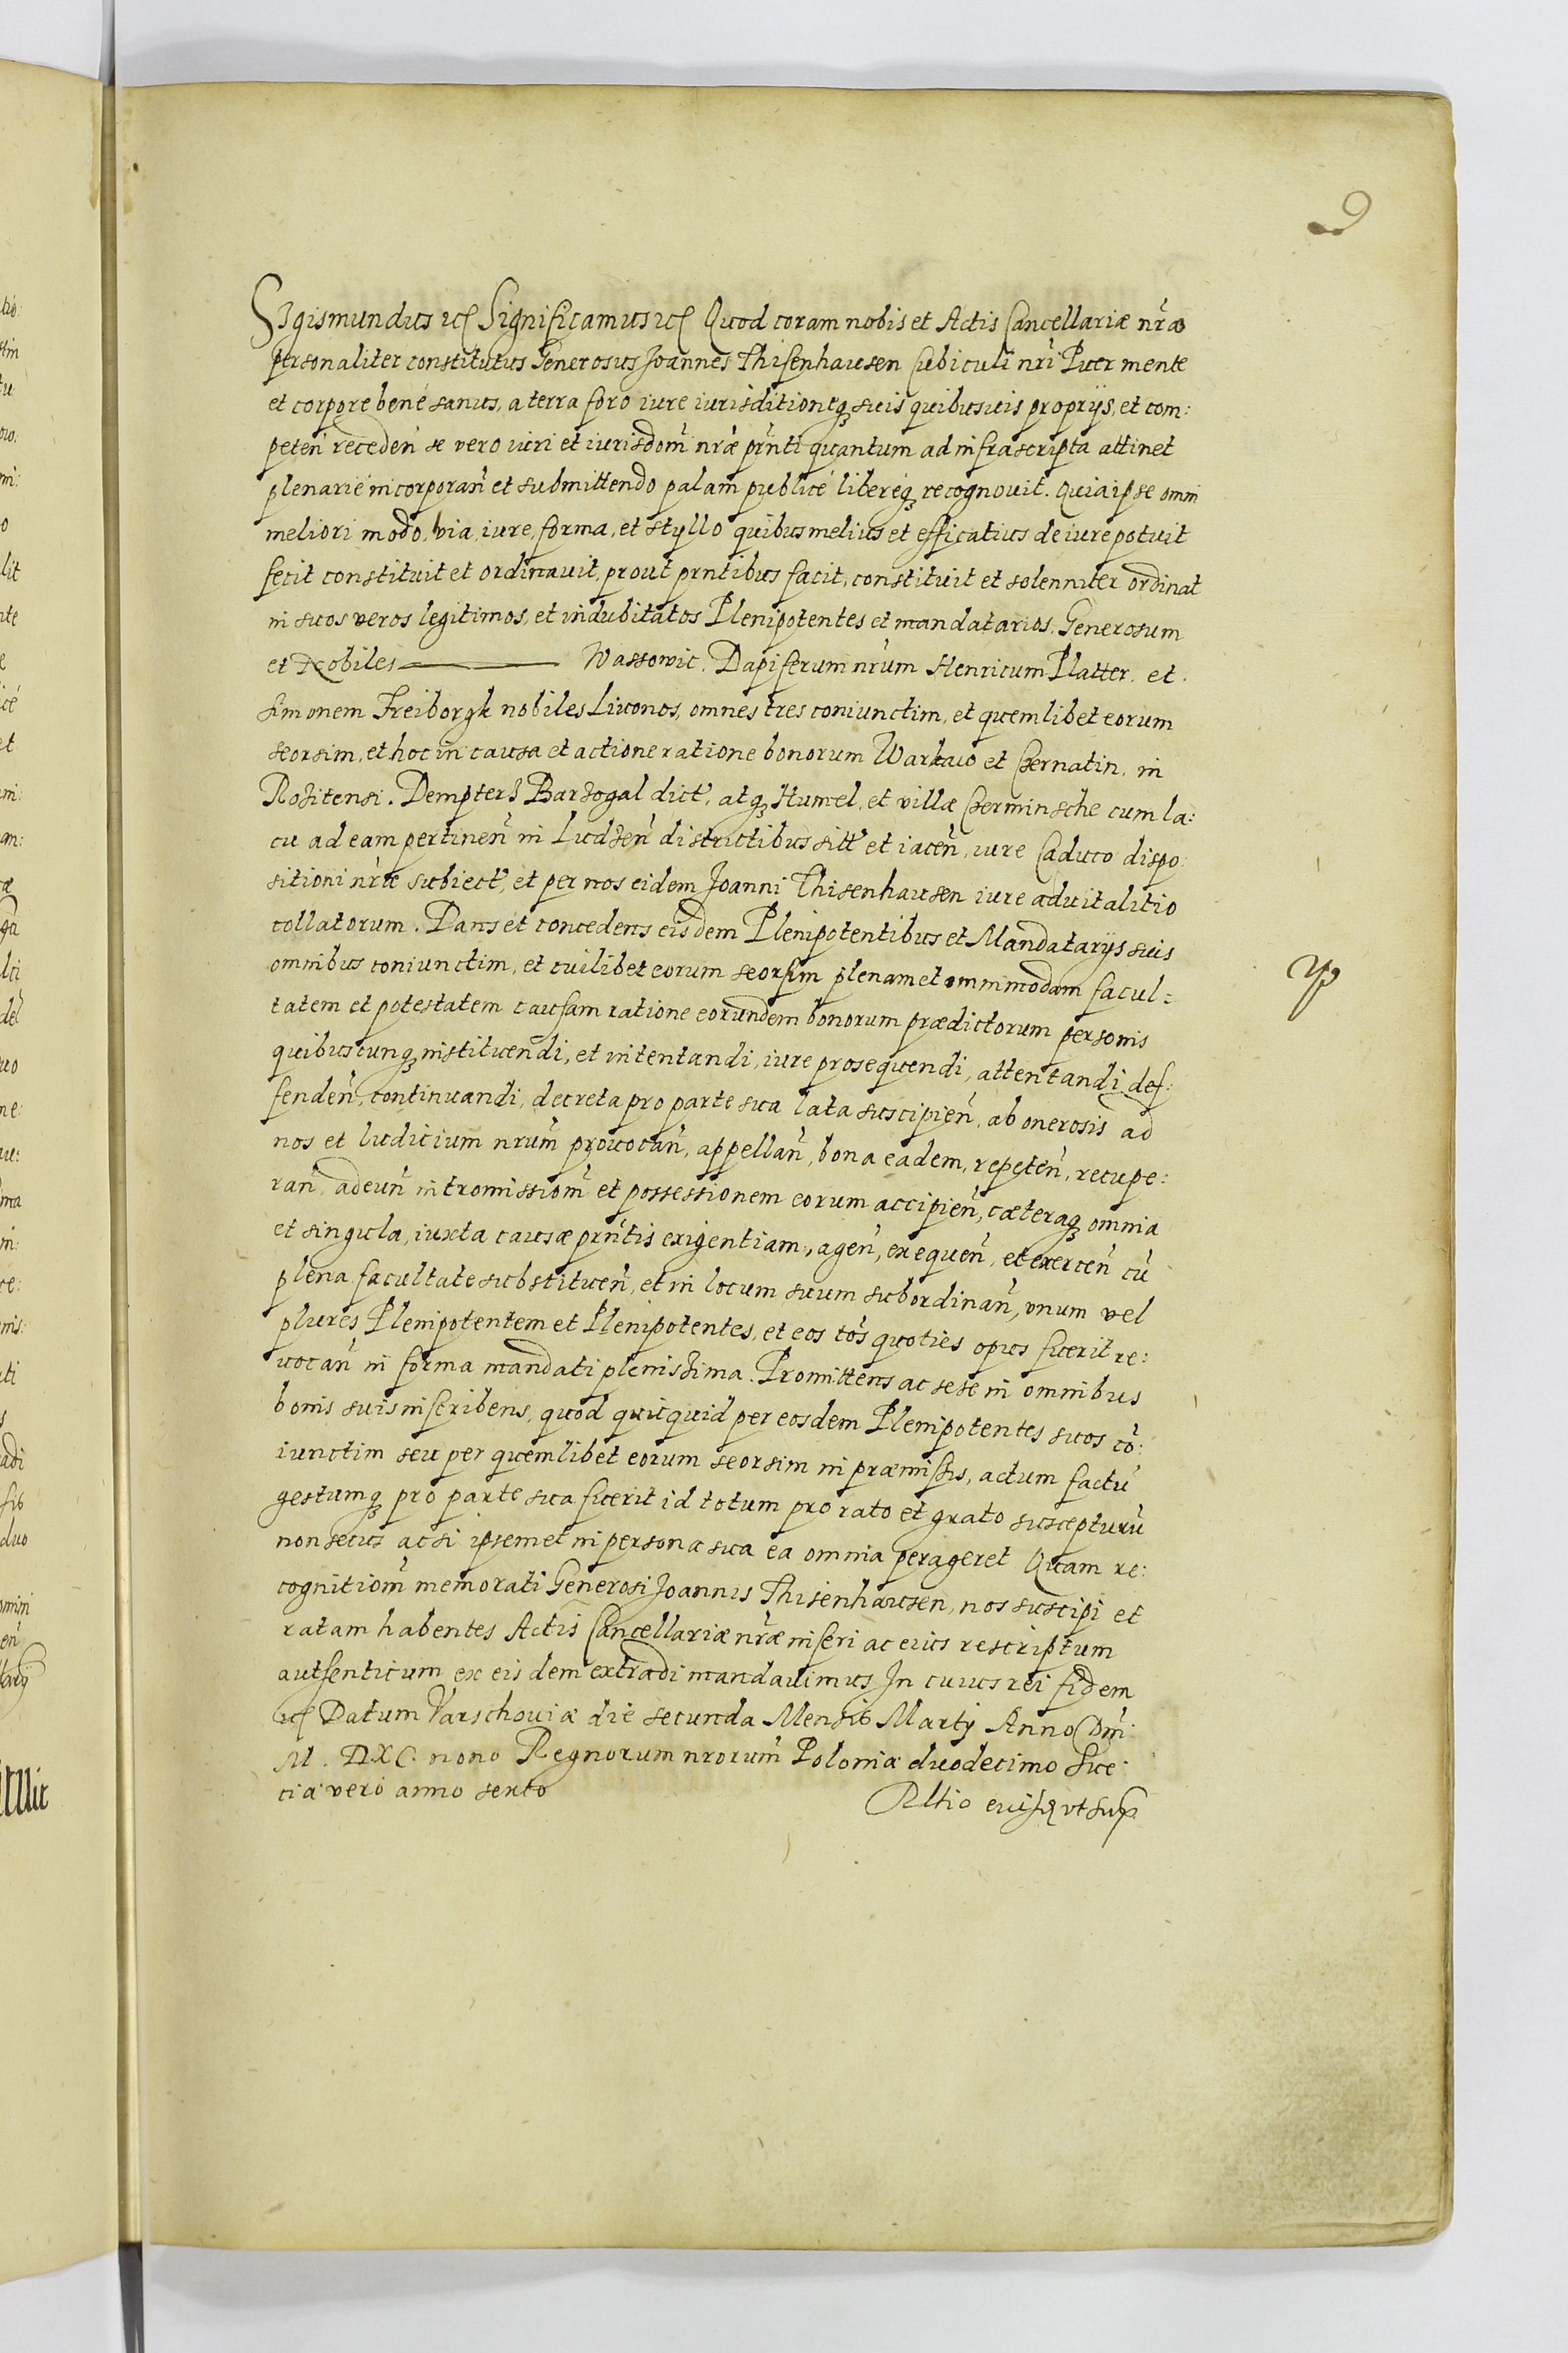 9
Sigismundus etc Significamus etc Quod coram nobis et Actis Cancellariæ nr̃æ
personaliter constitutus Generosus Joannes Thisenhausen Cubiculi nr̃i Puer mente
et corpore bene sanus, a terra foro iure iurisditioneq́ʒ suis quibusuis proprijs, et com:
peteñ recedeñ se vero iuri et iurisdom̃ nr̃æ pr̃nti quantum ad infrascripta attinet
plenarié incorporañ et submittendo palam publicé liberéqʒ recognouit. Quia ipse omni
meliori modo, via, iure, forma, et styllo quibus melius et efficatius de iure potuit
fecit constituit et ordinauit, prout prntibus facit, constituit et solenniter ordinat
in suos veros legitimos, et indubitatos Plenipotentes et mandatarios. Generosum
et Nobiles ——— Wassowic. Dapiferum nr̃um Henricum Platter. et
Simonem Freiborgk nobiles Liuonos, omnes tres coniunctim, et quemlibet eorum
seorsim, et hoc in causa et actione ratione bonorum Warkauo et Czernatin, in
Rositensi. Dempters Barzogal dict', atqʒ Humel, et villæ Czerminsche cum la:
cu ad eam pertineñ in Ludseñ districtibus sitt' et iaceñ, iure Caduco dispo:
sitioni nr̃æ subiect', et per nos eidem Joanni Thisenhausen iure aduitalitio
collatorum. Dans et concedens eisdem Plenipotentibus et Mandatarijs suis
omnibus coniunctim, et cuilibet eorum seorsim plenam et ommimodam facul:
tatem et potestatem causam ratione eorundem bonorum prædictorum personis
quibuscunqʒ instituendi, et intentandi, iure prosequendi, attentandi, def:
fendeñ, continuandi, decreta pro parte sua lata suscipieñ, ab onerosis ad
nos et Iudicium nrum̃ prouocañ, appellañ, bona eadem, repeteñ, recupe:
rañ, adeuñ intromissiom̃ et possessionem eorum accipieñ, cæteraqʒ omnia
et singula, iuxta causæ pr̃ntis exigentiam, ageñ, exequeñ, et exerceñ cũ
plena facultate substitueñ, et in locum suum subordinañ, vnum vel
plures Plenipotentem et Plenipotentes, et eos tõs quoties opus fuerit re:
uocañ in forma mandati plenissima. Promittens ac sese in omnibus
bonis suis inscribens, quod quicquid per eosdem Plenipotentes suos cõ:
iunctim seu per quemlibet eorum seorsim in præmissis, actum factũ
gestumqʒ pro parte sua fuerit id totum pro rato et grato suscepturũ
non secus ac si ipsemet in persona sua ea omnia perageret Quam re:
cognitiom̃ memorati Generosi Joannis Thisenhausen, nos suscipi et
ratam habentes Actis Cancellariæ nr̃æ inseri ac eius rescriptum
autsenticum ex eisdem extradi mandauimus In cuius rei fidem
etc Datum Varschouiæ die secunda Mensis Martij Anno Dm̃i
M. D. XC. nono Regnorum nrorum̃ Poloniæ duodecimo Sue:
tiæ vero anno sexto
Rltio eiusdʒ vt supra